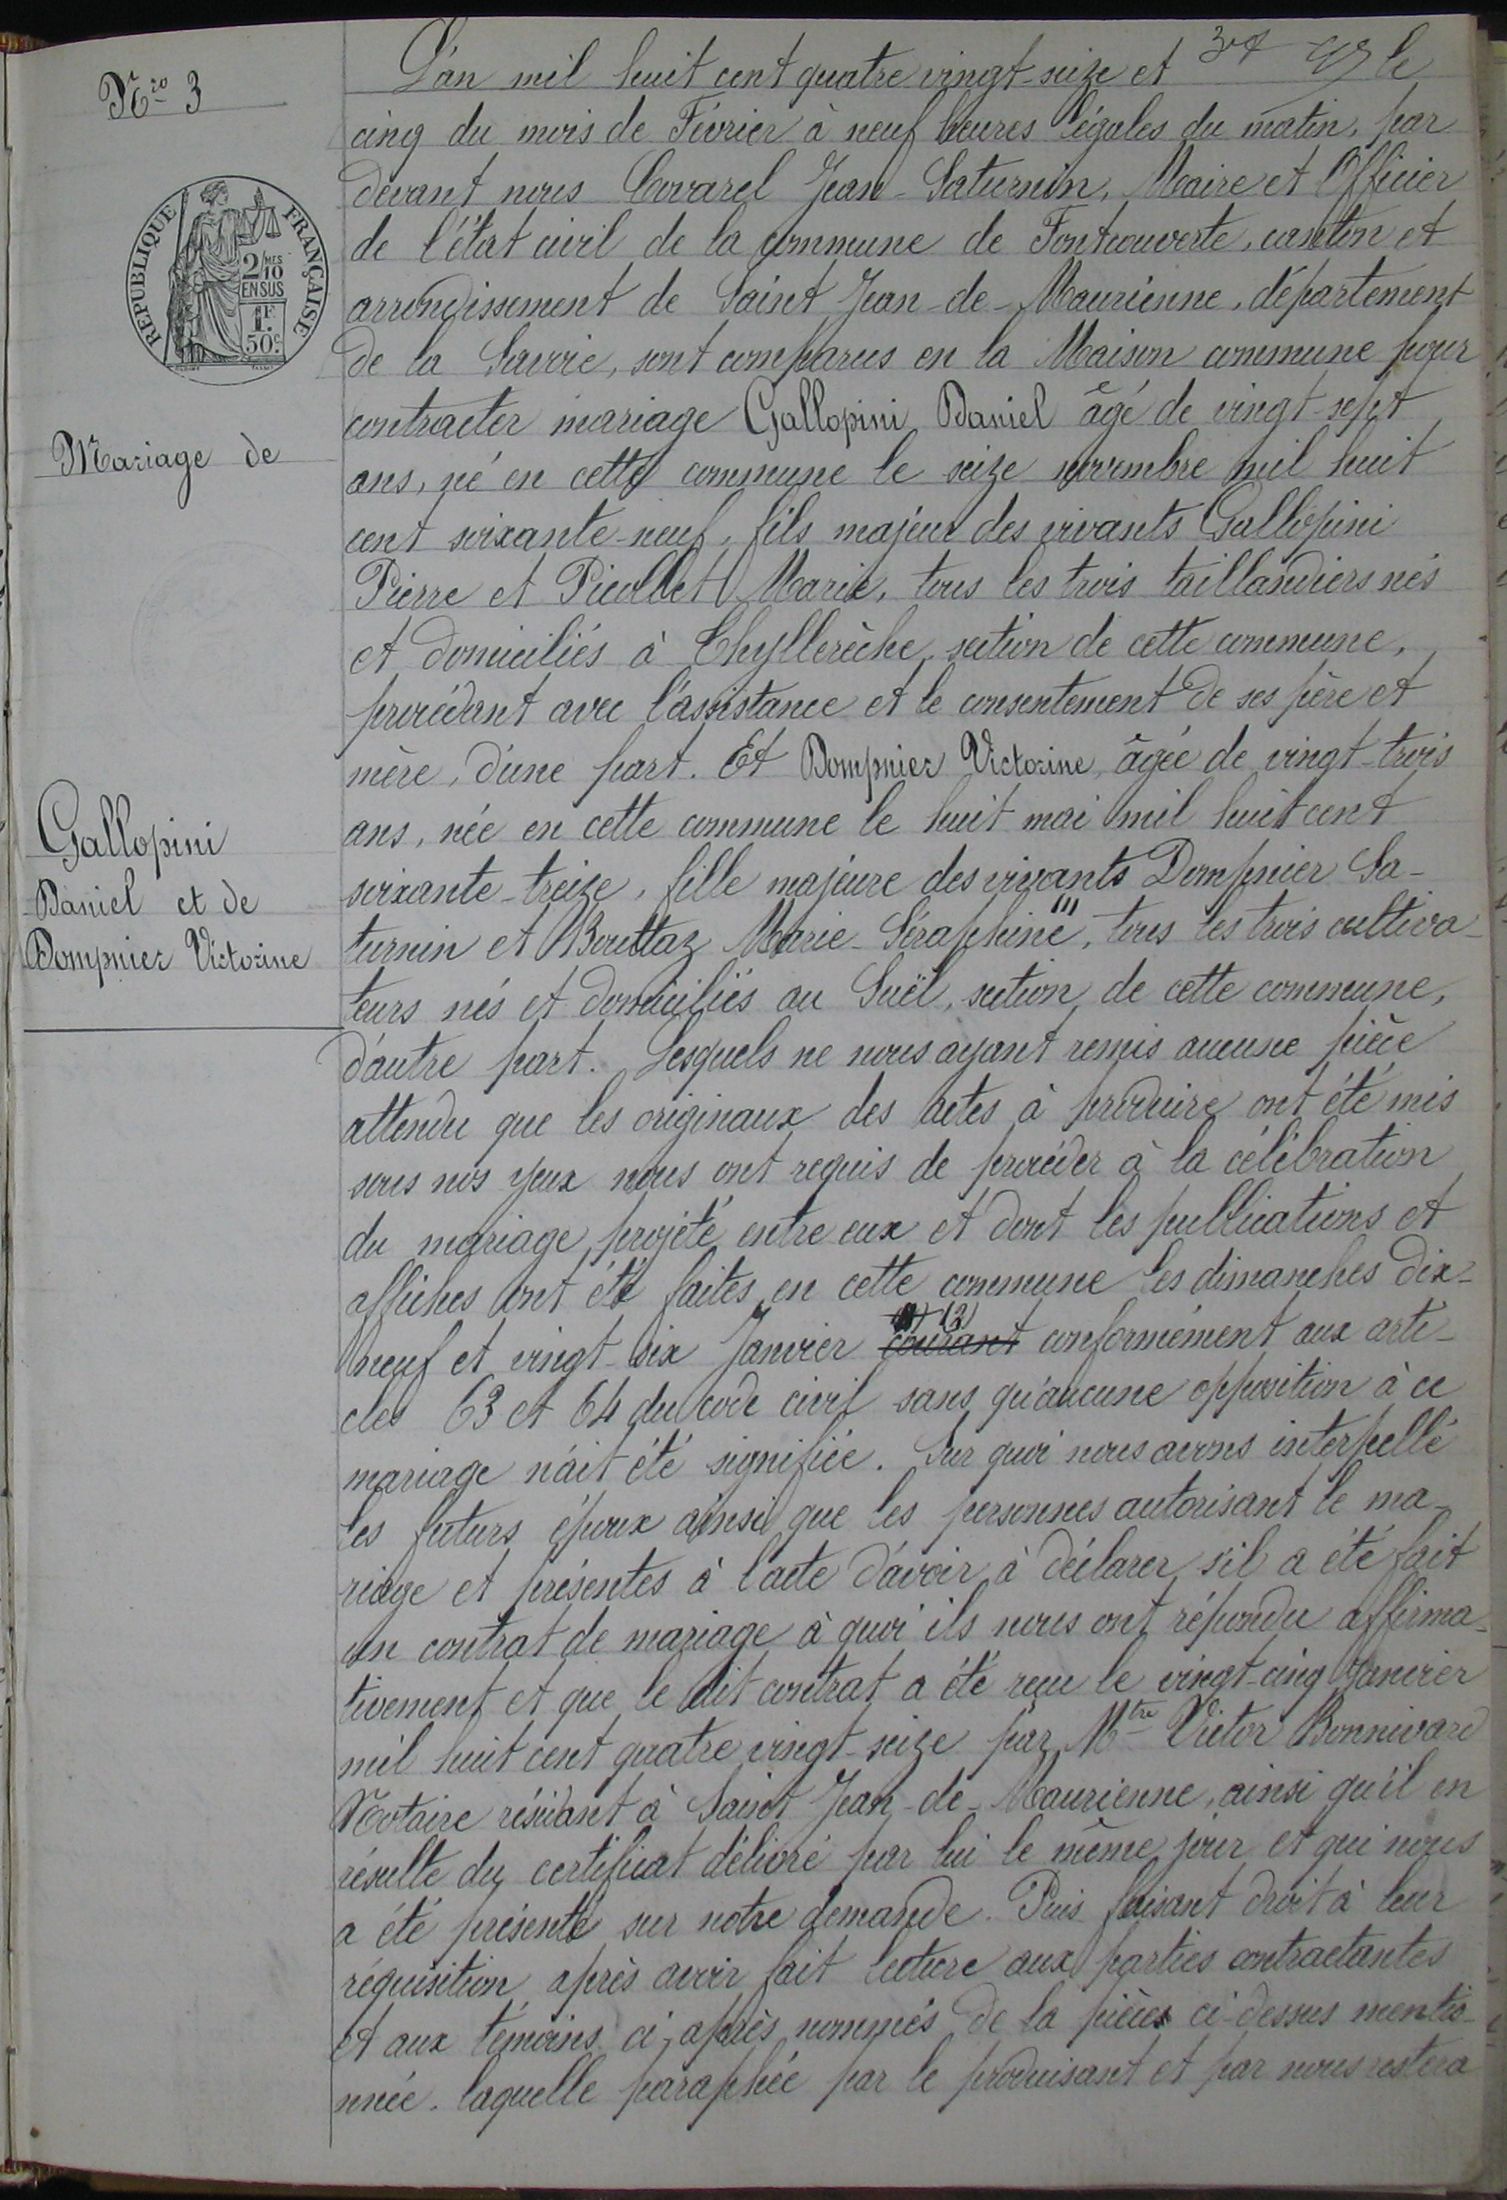 Nro 3
RÉPUBLIQUE FRANÇAISE
2/10 MES
EN SUS
1F
50c
Mariage de
Gallopini
Daniel et de
Dompnier Victorine
L'an mil huit cent quatre vingt-seize et le
cinq du mois de Février à neuf heures légales du matin, par
devant nous Covarel Jean-Saturnin, Maire et Officier
de l'état civil de la commune de Fontcouverte, canton et
arrondissement de Saint Jean-de-Maurienne, département
de la Savoie, sont comparus en la Maison commune pour
contracter mariage Gallopini Daniel âgé de vingt-sept
ans, né en cette commune le seize novembre mil huit
cent soixante-neuf, fils majeur des vivants Gallopini
Pierre et Picollet Marie, tous les trois taillandiers nés
et domiciliés à Chyllerèche, section de cette commune,
procédant avec l'assistance et le consentement de ses père et
mère, d'une part. Et Dompnier Victorine, âgée de vingt-trois
ans, née en cette commune le huit mai mil huit cent
soixante-treize, fille majeure des vivants Dompnier Sa-
turnin et Bouttaz Marie-Séraphine (1), tous les trois cultiva-
teurs nés et domiciliés au Suël, section de cette commune,
d'autre part. Lesquels ne nous ayant remis aucune pièce
attendu que les originaux des actes à produire ont été mis
sous nos yeux nous ont requis de procéder à la célébration
du mariage projeté entre eux et dont les publications et
affiches ont été faites en cette commune les dimanches dix-
neuf et vingt-six Janvier courant (2) conformément aux arti-
cles 63 et 64 du code civil sans qu'aucune opposition à ce
mariage n'ait été signifiée. Sur quoi nous avons interpellé
les futurs époux ainsi que les personnes autorisant le ma-
riage et présentes à l'acte d'avoir à déclarer s'il a été fait
un contrat de mariage à quoi ils nous ont répondu affirma-
tivement et que le dit contrat a été reçu le vingt-cinq Janvier
mil huit cent quatre vingt-seize par Mtre Victor Bonnivard
Notaire résidant à Saint Jean-de-Maurienne, ainsi qu'il en
résulte du certificat délivré par lui le même jour et qui nous
a été présenté sur notre demande. Puis faisant droit à leur
réquisition après avoir fait lecture aux parties contractantes
et aux témoins ci-après nommés de la pièces ci-dessus mentio-
nnée, laquelle paraphée par le produisant et par nous restera